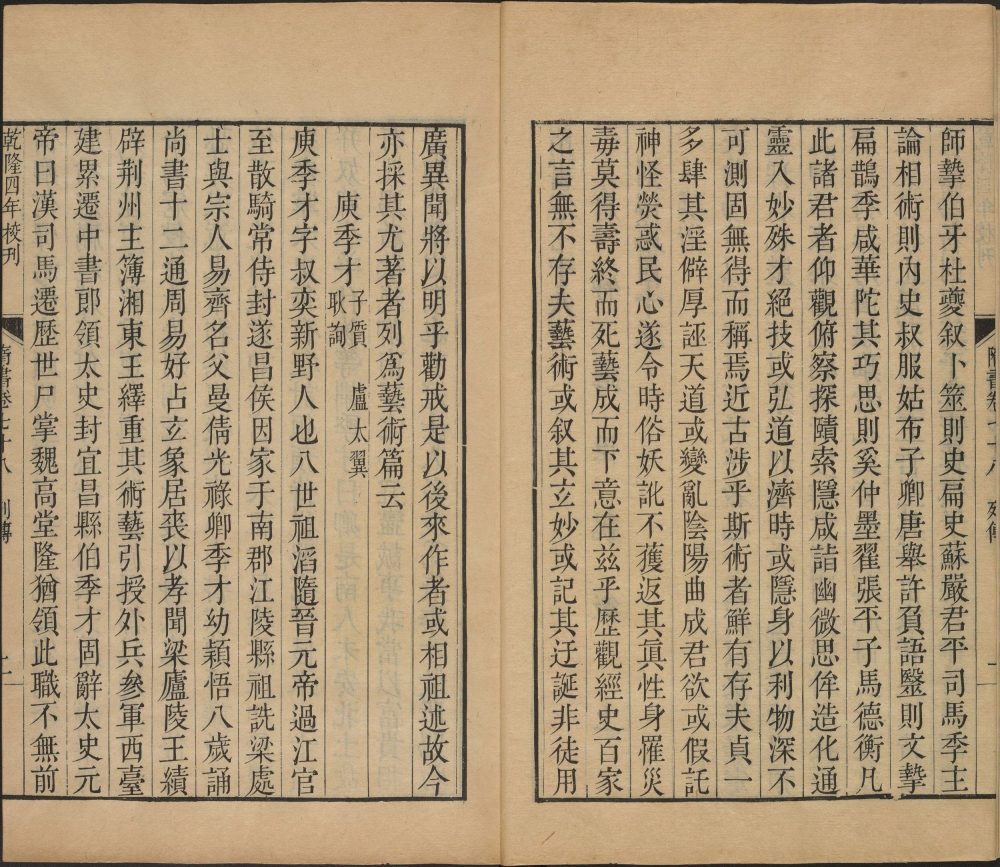 隋書卷七十八 列傳
師摯伯牙杜夔叙卜筮則史扁史蘇嚴君平司馬季主
論相術則内史叔服姑布子卿唐舉許負語毉則文摯
扁鵲季咸華陀其巧思則奚仲墨翟張平子馬德衡凡
此諸君者仰觀俯察探賾索隱咸詣幽微思侔造化通
靈入妙殊才絕技或弘道以濟時或隱身以利物深不
可測固無得而稱焉近古涉乎斯術者鮮有存夫貞一
多肆其淫僻厚誣天道或變亂陰陽曲成君欲或假託
神怪熒惑民心遂令時俗妖訛不獲返其真性身罹災
毒莫得壽終而死藝成而下意在兹乎歷觀經史百家
之言無不存夫藝術或叙其玄妙或記其迂誕非徒用
廣異聞將以明乎勸戒是以後來作者或相祖述故今
亦採其尤著者列爲藝術篇云
庾季才 子質 盧太翼
耿詢
庾季才字叔奕新野人也八世祖滔隨晉元帝過江官
至散騎常侍封遂昌侯因家于南郡江陵縣祖詵梁處
士與宗人易齊名父曼倩光祿卿季才幼穎悟八歲誦
尚書十二通周易好占玄象居喪以孝聞梁廬陵王績
辟荆州主簿湘東王繹重其術藝引授外兵參軍西臺
建累遷中書郎領太史封宜昌縣伯季才固辭太史元
帝曰漢司馬遷歷世尸掌魏高堂隆猶領此職不無前
乾隆四年校刊 隋書卷七十八 列傳